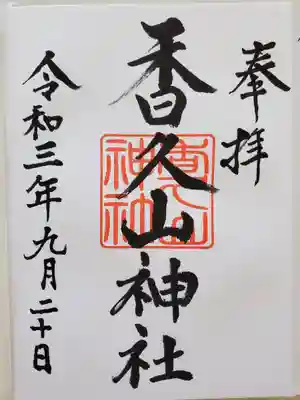 奉拝
香久山神社
令和三年九月二十日
香久山
神社